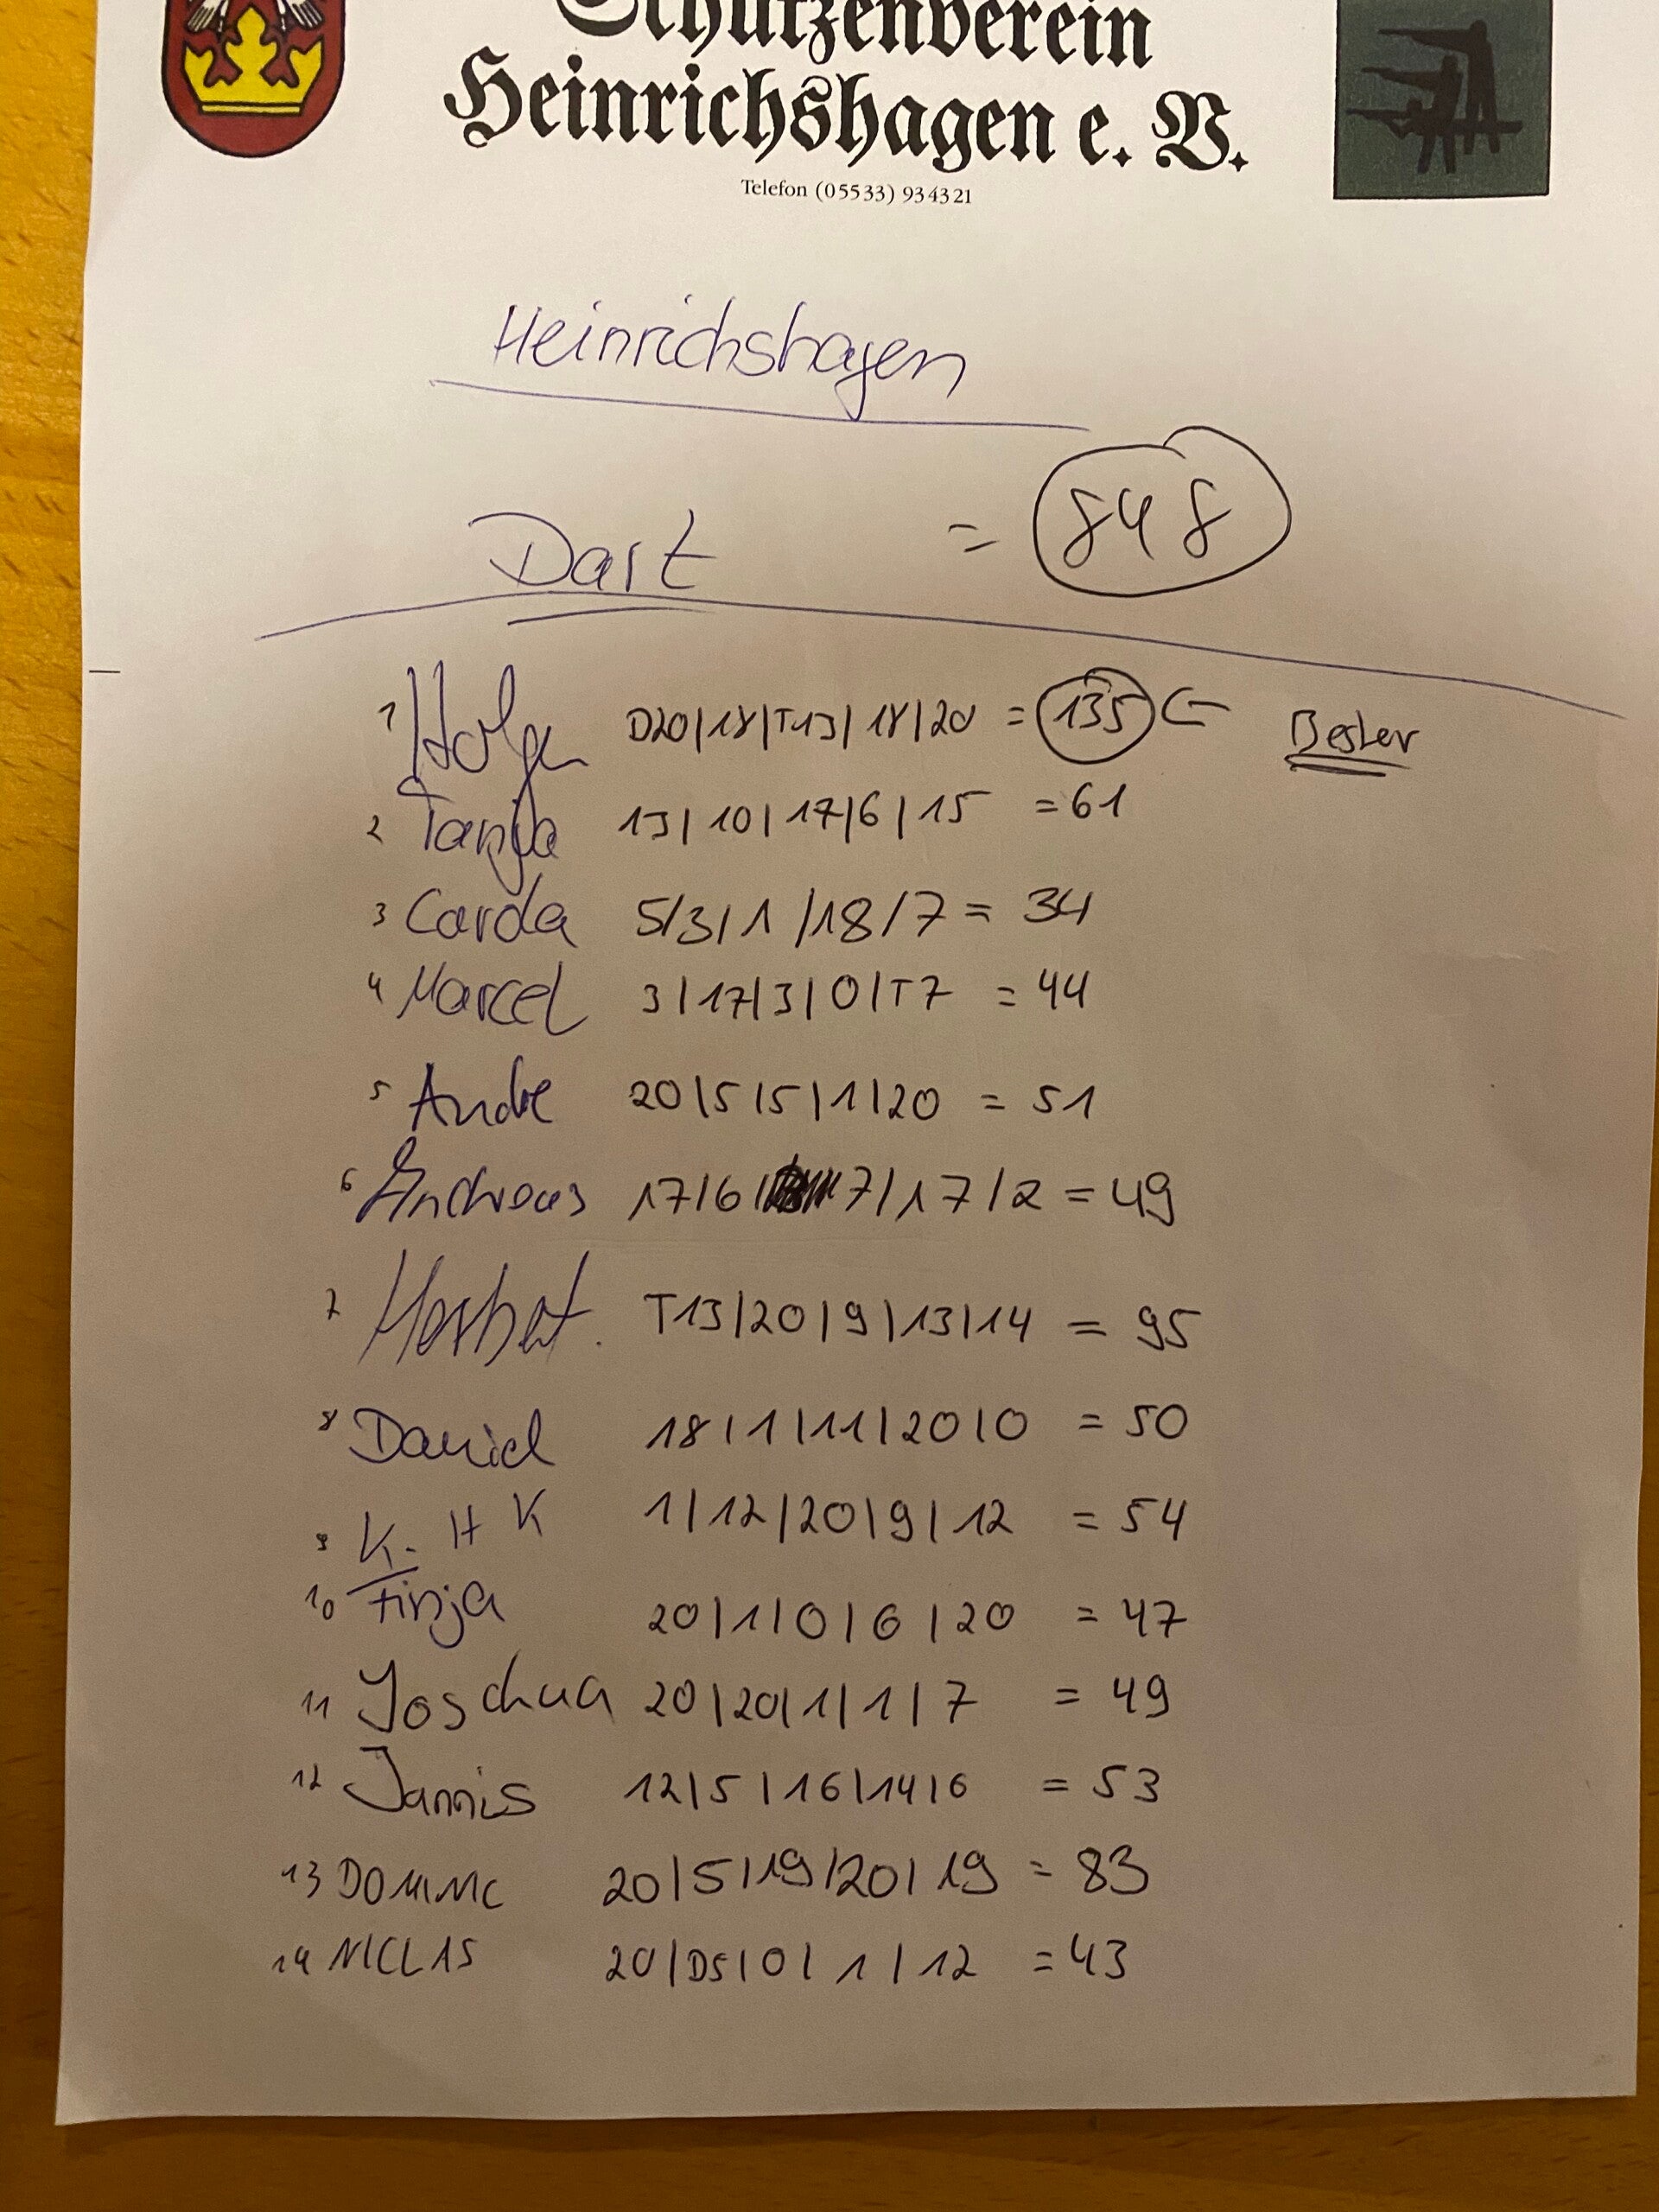 Schützenverein
Heinrichshagen e. V.
Telefon (05533) 934321
Heinrichshagen
Dart = 848
1 Holger D20/18/T13/18/20 = 135 ← Bester
2 Tanja 13/10/17/6/15 = 61
3 Carda 5/3/1/18/7 = 34
4 Marcel 3/17/3/0/T7 = 44
5 Andre 20/5/5/1/20 = 51
6 Andreas 17/6/7/17/2 = 49
7 Herbert. T13/20/9/13/14 = 95
8 Daniel 18/1/11/20/0 = 50
9 K. H K 1/12/20/9/12 = 54
10 Finja 20/1/0/6/20 = 47
11 Joschua 20/20/1/1/7 = 49
12 Jannis 12/5/16/14/6 = 53
13 DOMINIC 20/5/19/20/19 = 83
14 NICLAS 20/D5/0/1/12 = 43